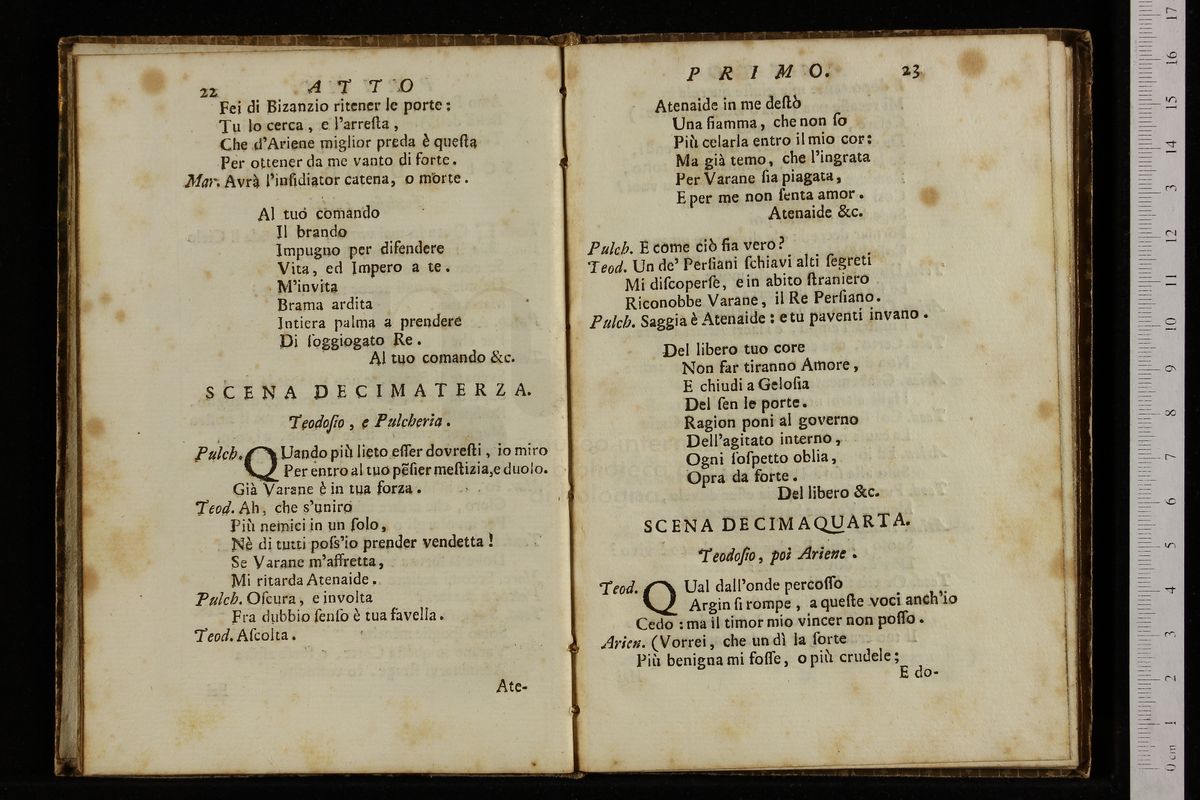 22
ATTO
Fei di Bizanzio ritener le porte:
Tu lo cerca, e l'arreſta,
Che d'Ariene miglior preda è queſta
Per ottener da me vanto di forte.
Mar. Avrà l'inſidiator catena, o morte.
Al tuo comando
Il brando
Impugno per difendere
Vita, ed Impero a te.
M'invita
Brama ardita
Intiera palma a prendere
Di ſoggiogato Re.
Al tuo comando &c.
SCENA DECIMATERZA.
Teodoſio, e Pulcheria.
Pulch. QUando più lieto eſſer dovreſti, io miro
Per entro al tuo pẽſier meſtizia,e duolo.
Già Varane è in tua forza.
Teod. Ah, che s'uniro
Più nemici in un ſolo,
Nè di tutti poſs'io prender vendetta!
Se Varane m'affretta,
Mi ritarda Atenaide.
Pulch. Oſcura, e involta
Fra dubbio ſenſo è tua favella.
Teod. Aſcolta.
Ate-
PRIMO.
23
Atenaide in me deſtò
Una fiamma, che non ſo
Più celarla entro il mio cor:
Ma già temo, che l'ingrata
Per Varane ſia piagata,
E per me non ſenta amor.
Atenaide &c.
Pulch. E come ciò fia vero?
Teod. Un de' Perſiani ſchiavi alti ſegreti
Mi diſcoperſe, e in abito ſtraniero
Riconobbe Varane, il Re Perſiano.
Pulch. Saggia è Atenaide: e tu paventi invano.
Del libero tuo core
Non far tiranno Amore,
E chiudi a Geloſia
Del ſen le porte.
Ragion poni al governo
Dell'agitato interno,
Ogni ſoſpetto oblia,
Opra da forte.
Del libero &c.
SCENA DECIMAQUARTA.
Teodoſio, poi Ariene.
Teod. QUal dall'onde percoſſo
Argin ſi rompe, a queſte voci anch'io
Cedo: ma il timor mio vincer non poſſo.
Arien. (Vorrei, che un dì la ſorte
Più benigna mi foſſe, o più crudele;
E do-